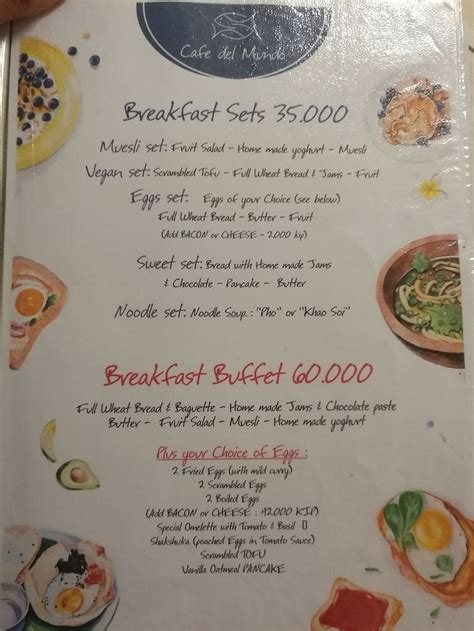 Cafe del Mundo
Breakfast Sets 35.000
Muesli set: Fruit Salad - Home made yoghurt - Muesli
Vegan set: Scrambled Tofu - Full Wheat Bread & Jams - Fruit
Eggs set: Eggs of your Choice (see below)
Full Wheat Bread - Butter - Fruit
(Add BACON or CHEESE - 2.000 kip)
Sweet set: Bread with Home made Jams
& Chocolate - Pancake - Butter
Noodle set: Noodle Soup : "Pho" or "Khao Soi"
Breakfast Buffet 60.000
Full Wheat Bread & Baguette - Home made Jams & Chocolate paste
Butter - Fruit Salad - Muesli - Home made yoghurt
Plus your Choice of Eggs :
2 Fried Eggs (with mild curry)
2 Scrambled Eggs
2 Boiled Eggs
(Add BACON or CHEESE : 12.000 KIP)
Special Omelette with Tomato & Basil
Shakshuka (poached Eggs in Tomato Sauce)
Scrambled TOFU
Vanilla Oatmeal PANCAKE